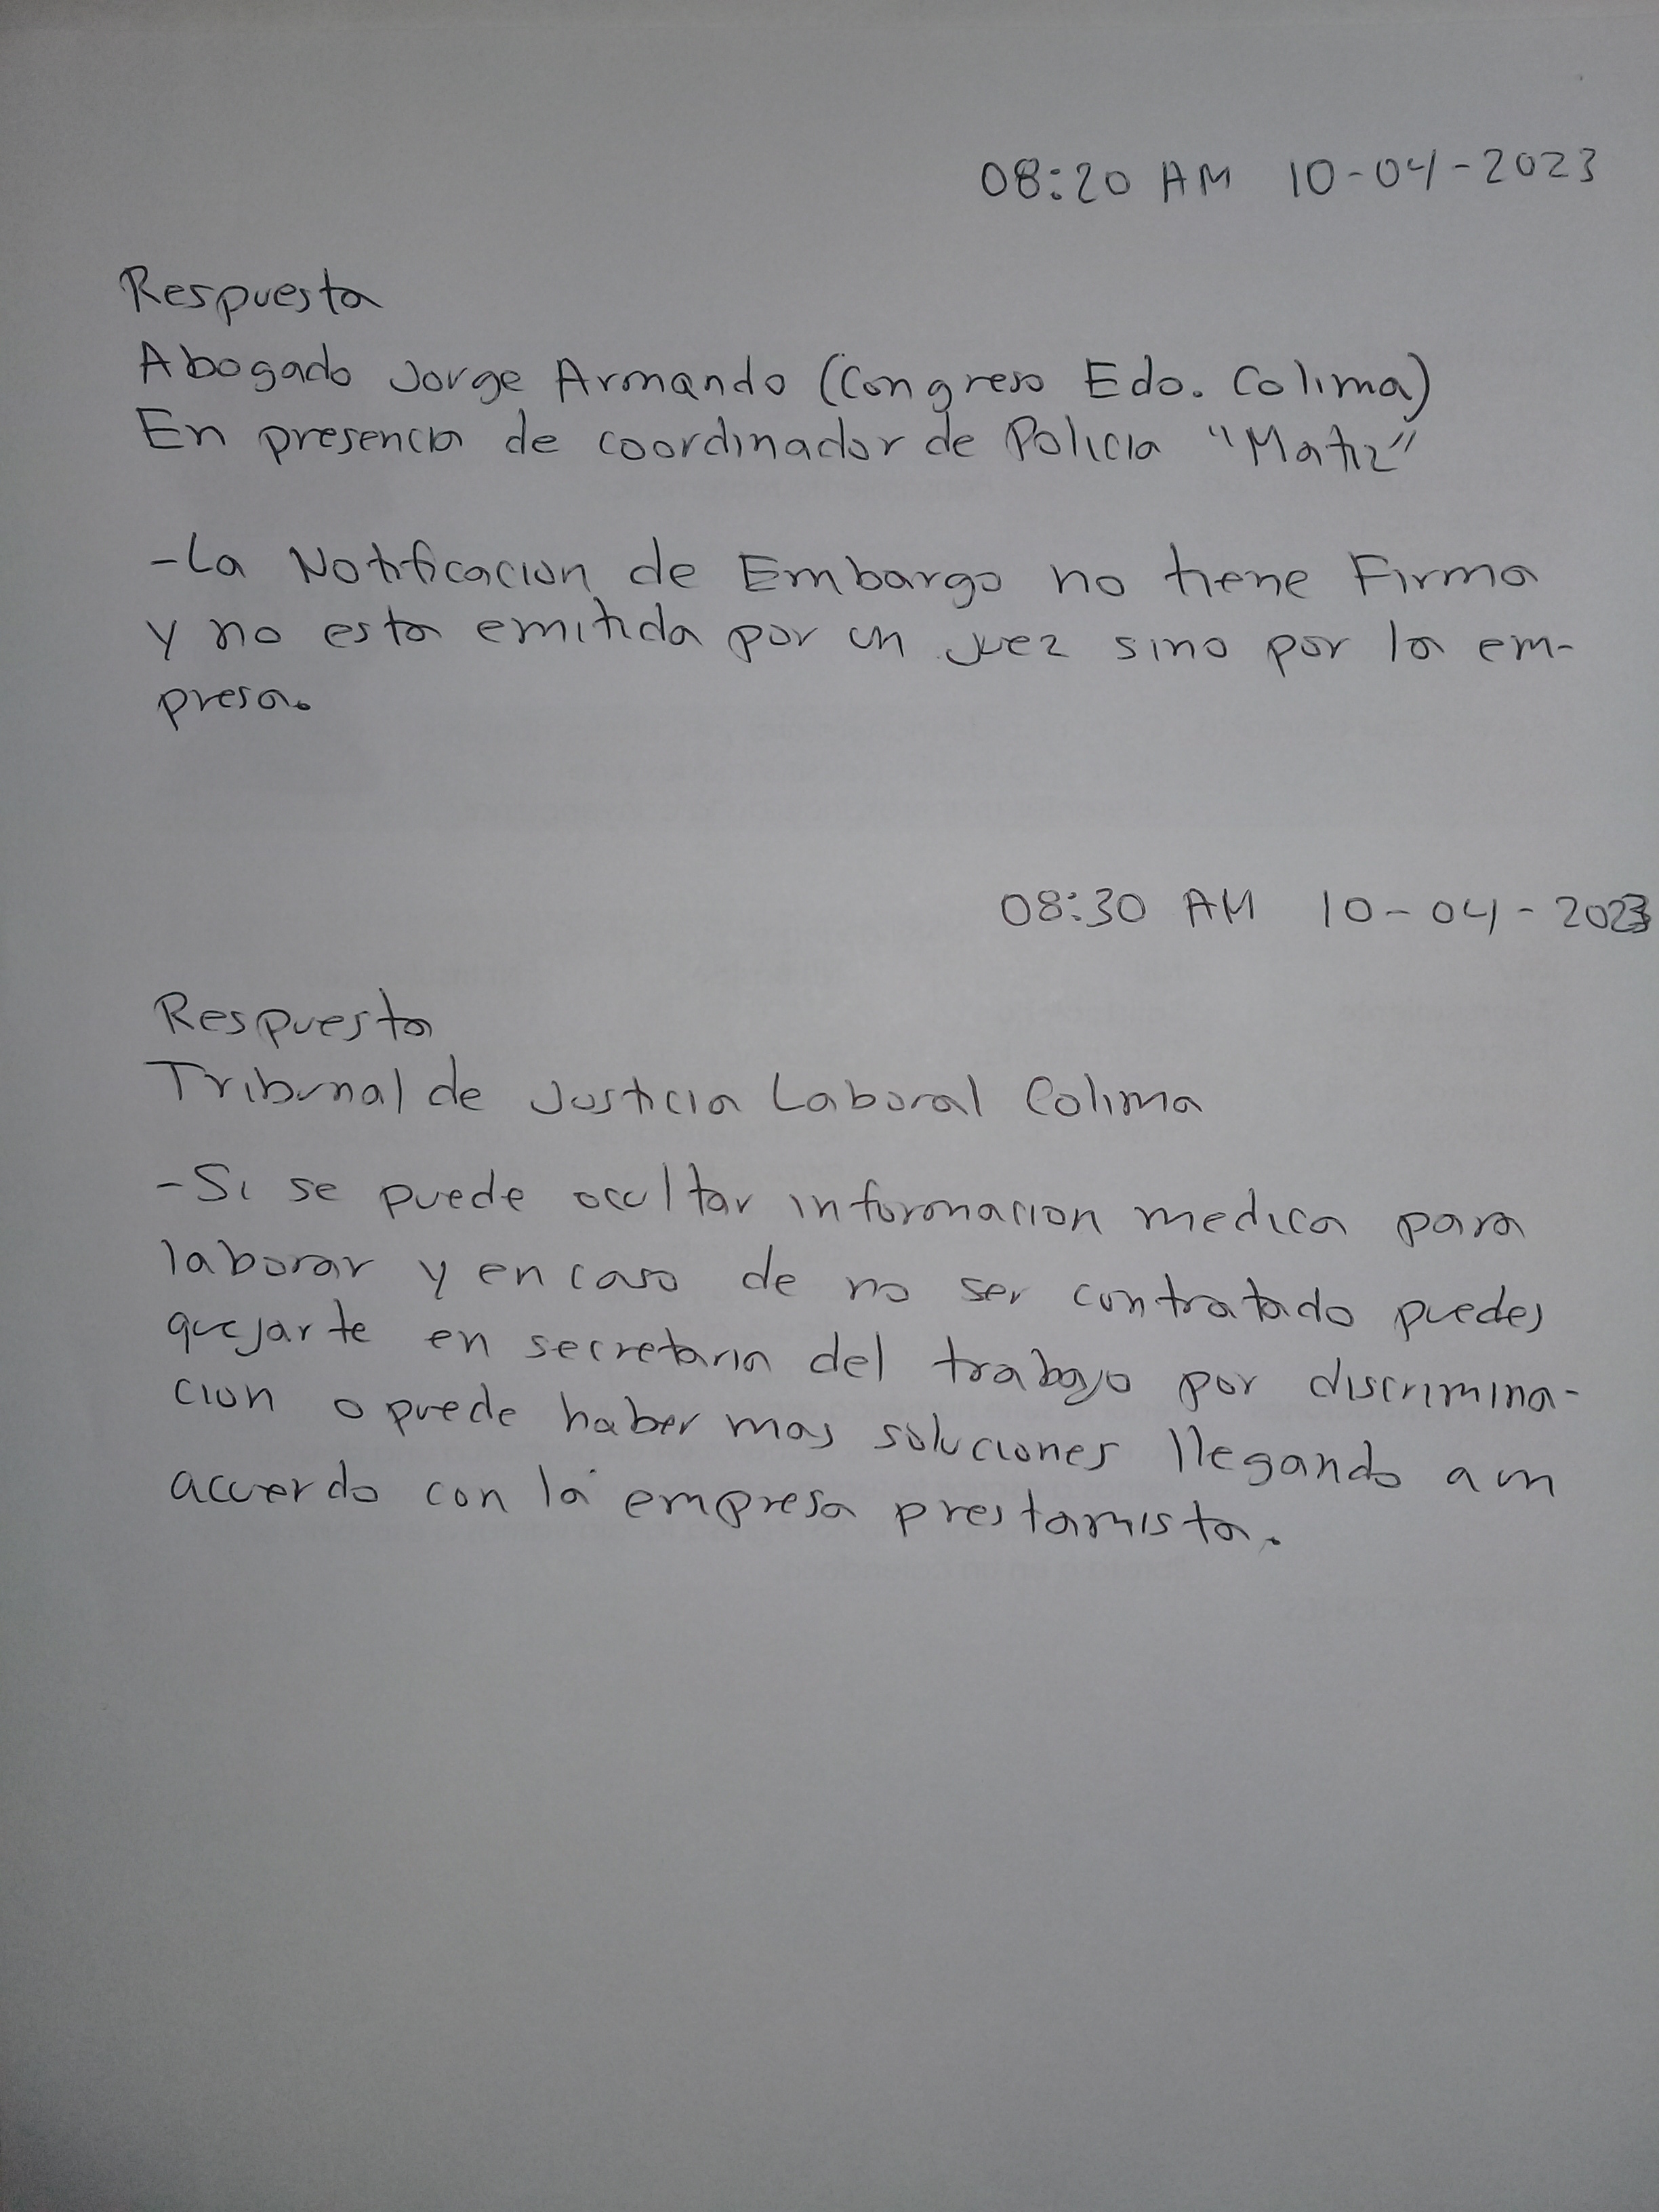 08:20 AM 10-04-2023
Respuesta
Abogado Jorge Armando (Congreso Edo. Colima)
En presencia de coordinador de Policia "Matiz"
-La Notificacion de Embargo no tiene Firma
y no esta emitida por un juez sino por la em-
presa.
08:30 AM 10-04-2023
Respuesta
Tribunal de Justicia Laboral Colima
-Si se puede ocultar informacion medica para
laborar y en caso de no ser contratado puedes
quejarte en secretaria del trabajo por discrimina-
cion o puede haber mas soluciones llegando a un
acuerdo con la empresa prestamista.